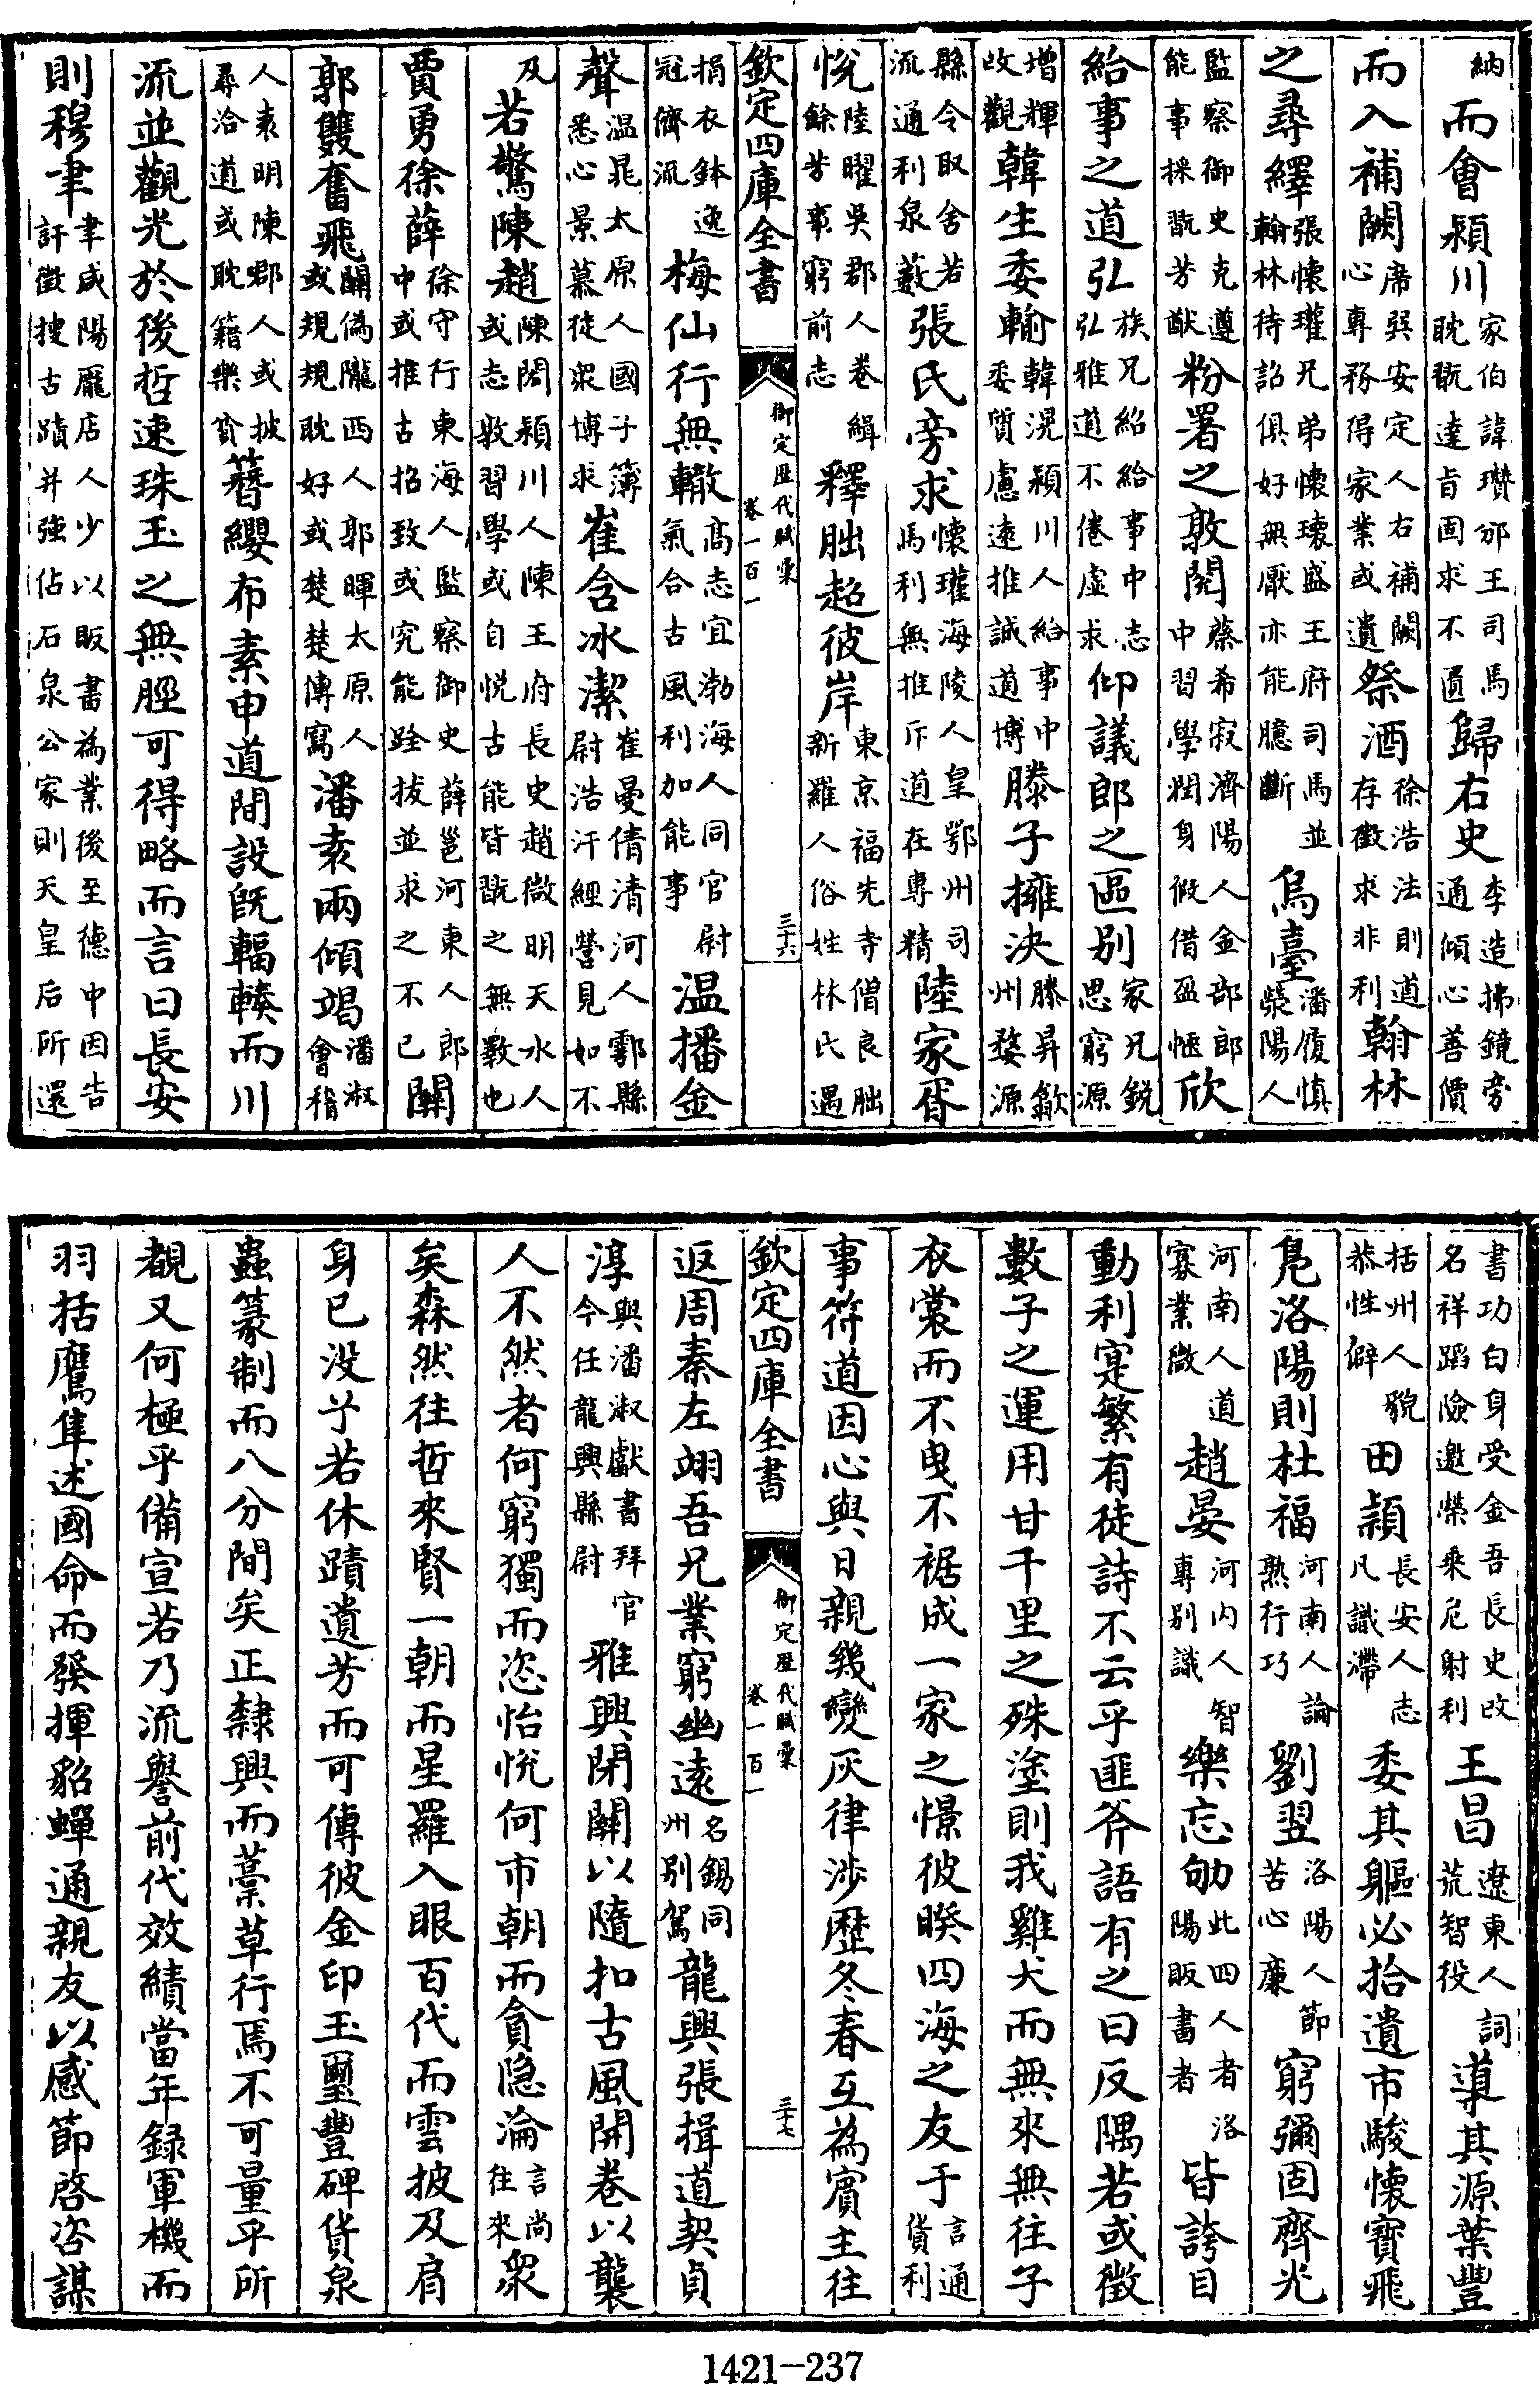 納而會潁川家伯諱瓚邠王司馬耽翫達旨固求不匱歸右史李造拂鏡旁通傾心善價
而入補闕席巽安定人右補闕心專務得家業或遺祭酒徐浩法則道存徵求非利翰林
之尋繹張懷瓘兄弟懷瓌盛王府司馬並翰林待詔俱好無厭亦能臆斷烏臺潘履慎滎陽人
監察御史克遵能事採翫芳猷粉署之敦閱蔡希寂濟陽人金部郎中習學潤身假借盈愜欣
給事之道弘族兄紹給事中志弘雅道不倦虛求仰議郎之區别家兄銳思窮源
增輝改觀韓生委輸韓滉潁川人給事中委質慮遠推誠道博滕子擁決滕昇歙州婺源
縣令取舍若流通利泉藪張氏旁求懷瓘海陵人皇鄂州司馬利無推斥道在專精陸家胥
悅陸曜吳郡人卷緝餘芳事窮前志釋朏超彼岸東京福先寺僧良朏新羅人俗姓林氏遇
欽定四庫全書 御定歷代賦彙 卷一百一 三十六
捐衣鉢逸冠儕流梅仙行無轍高志宜渤海人同官尉氣合古風利加能事温播金
聲温晁太原人國子簿悉心景慕徒衆博求崔含冰潔崔曼倩清河人鄠縣尉浩汗經營見如不
及若驚陳趙陳閎潁川人陳王府長史趙微明天水人或志敦習學或自悅古能皆翫之無斁也
賈勇徐薛徐守行東海人監察御史薛邕河東人郎中或推古招致或究能跧拔並求之不已闗
郭雙奮飛闗僞隴西人郭暉太原人或規規耽好或楚楚傳寫潘袁兩傾竭潘淑會稽
人袁明陳郡人或披尋洽道或耽籍樂貧簪纓布素申道間設旣輻輳而川
流並觀光於後哲速珠玉之無脛可得略而言曰長安
則穆聿聿咸陽龐店人少以販書為業後至德中因告訐徵搜古蹟并強佔石泉公家則天皇后所還
書功白身受金吾長史改名祥蹈險邀榮乘危射利王昌遼東人詞荒智役導其源葉豐
括州人貌恭性僻田頴長安人志凡識滯委其軀必拾遺市駿懷寶飛
鳧洛陽則杜福河南人論熟行巧劉翌洛陽人節苦心廉窮彌固齊光
河南人道寡業微趙晏河内人智專别識樂忘劬此四人者洛陽販書者皆誇目
動利寔繁有徒詩不云乎匪斧語有之曰反隅若或徵
數子之運用甘千里之殊塗則我雞犬而無來無往子
衣裳而不曳不裾成一家之憬彼睽四海之友于言通貨利
事符道因心與日親幾變灰律渉歷冬春互為賓主往
欽定四庫全書 御定歷代賦彙 卷一百一 三十七
返周秦左翊吾兄業窮幽遠名錫同州别駕龍興張揖道契貞
淳與潘淑獻書拜官今任龍興縣尉雅興閉關以隨扣古風開卷以襲
人不然者何窮獨而恣怡悅何市朝而貪隐淪言尚往來衆
矣森然往哲來賢一朝而星羅入眼百代而雲披及肩
身已没兮若休蹟遺芳而可傳彼金印玉璽豐碑貨泉
蟲篆制而八分間矣正隸興而藁草行焉不可量乎所
覩又何極乎備宣若乃流譽前代效績當年録軍機而
羽括鷹隼述國命而發揮貂蟬通親友以感節啓咨謀
1421-237